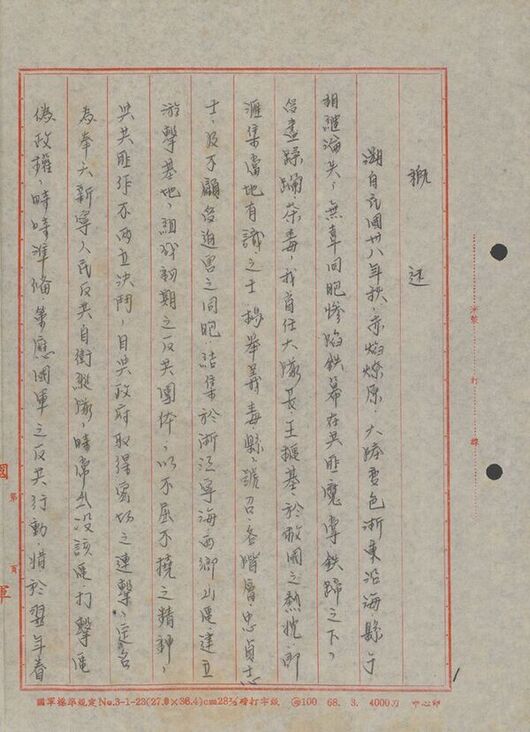 概述
溯自民國卅八年秋,赤焰燎原,大陸變色浙東沿海縣市
相繼淪失,無辜同胞慘陷鉄幕在共匪魔掌鉄蹄之下,
蹂躪荼毒,我首任大隊長王 基於救國之熱忱,
滙集當地有識之士, 舉義 ,號召各階層忠貞志
士,及不願受迫害之同胞,結集於浙江寧海西鄉山區建立
游擊基地,組成初期之反共團体,以不屈不撓之精神,
與共匪作不两立決鬥,自與政府取得 之連繫,定名
為奉六新寧人民反共自衛縱隊,時常出沒該區,打擊匪
偽政權,時時準備策應國軍之反共行動,惜於翌年春
1
裝 打 線
國 第 頁 軍
國軍標準規定No.3-1-23(27.0×38.4)cm28 打字紙 100 68. 3. 4000刀 中心印